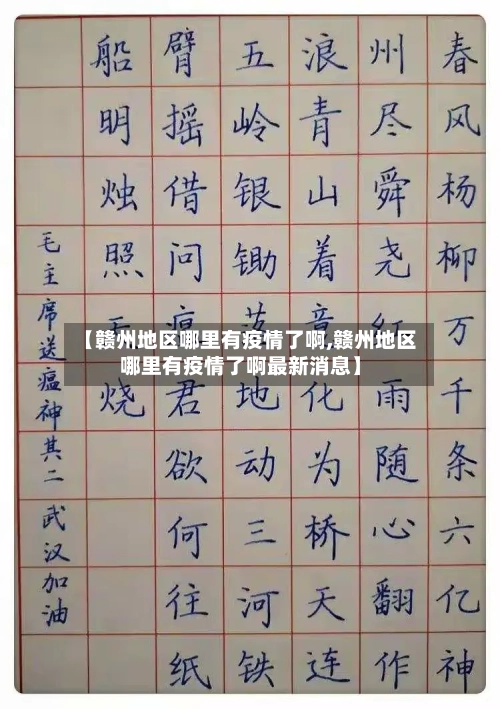 春风杨柳万千条六亿神
州尽舜尧红雨随心翻作
浪青山着意化为桥天连
五岭银锄落地动三河铁
臂摇借问瘟君欲何往纸
船明烛照天烧
毛主席送瘟神其二 武汉加油
【赣州地区哪里有疫情了啊,赣州地区
哪里有疫情了啊最新消息】